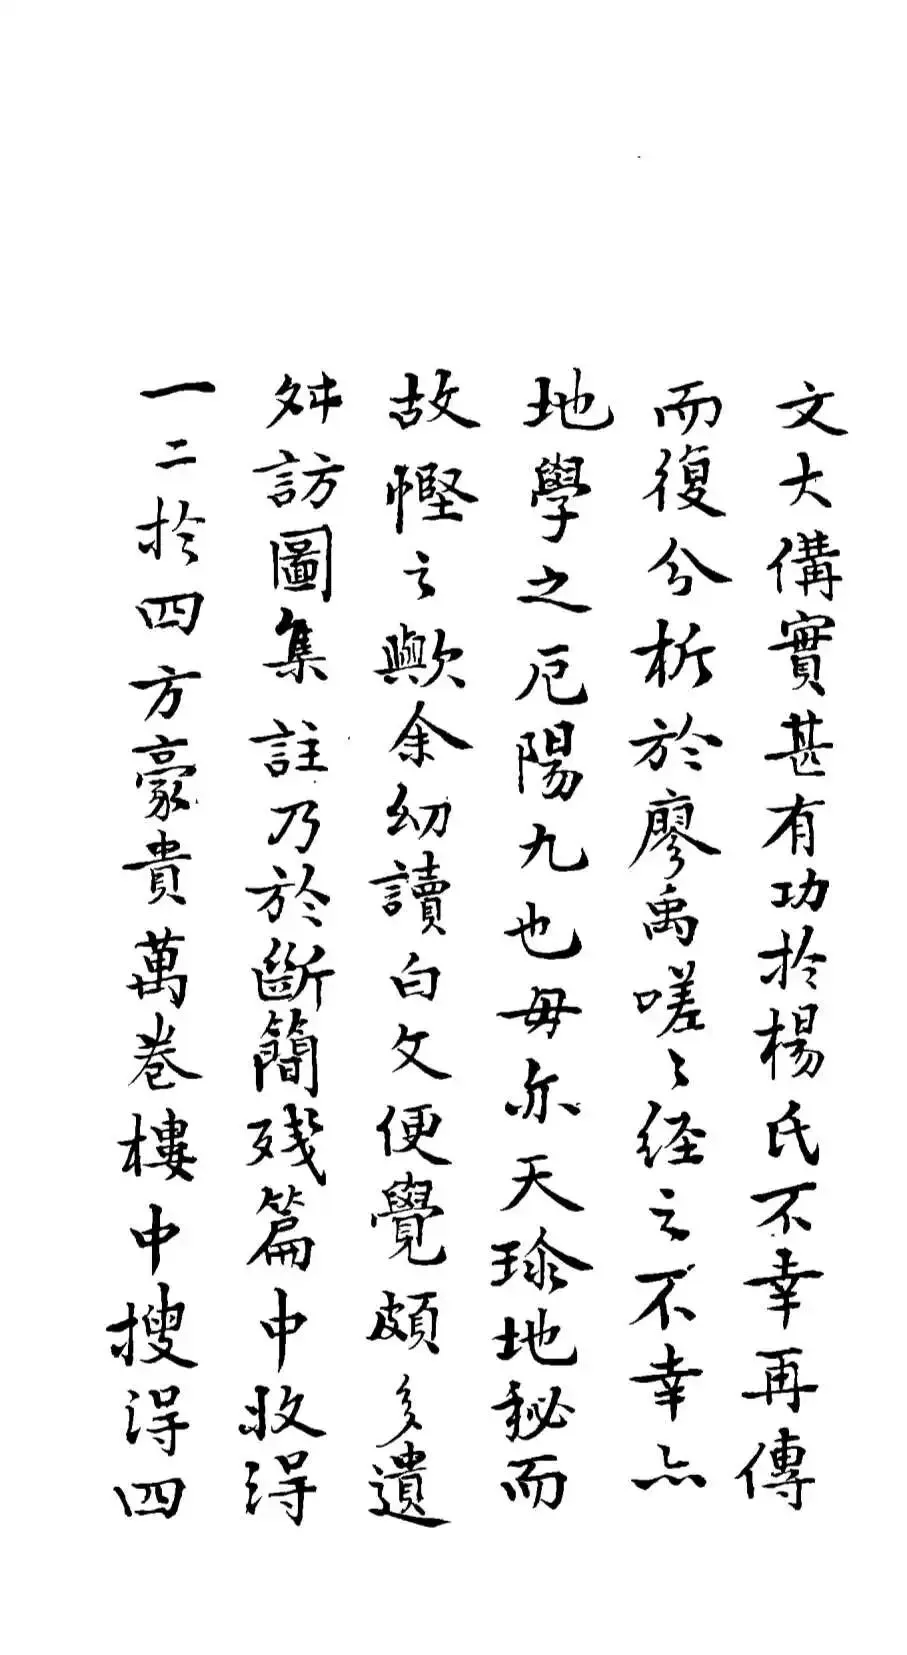 文大備實甚有功於楊氏不幸再傳
而復分析於廖禹嗟〻経之不幸亦
地學之厄陽九也毋亦天珍地秘而
故慳之歟余幼讀白文便覺頗多遺
舛訪圖集註乃於斷簡残篇中收得
一二於四方豪貴萬卷樓中搜得四